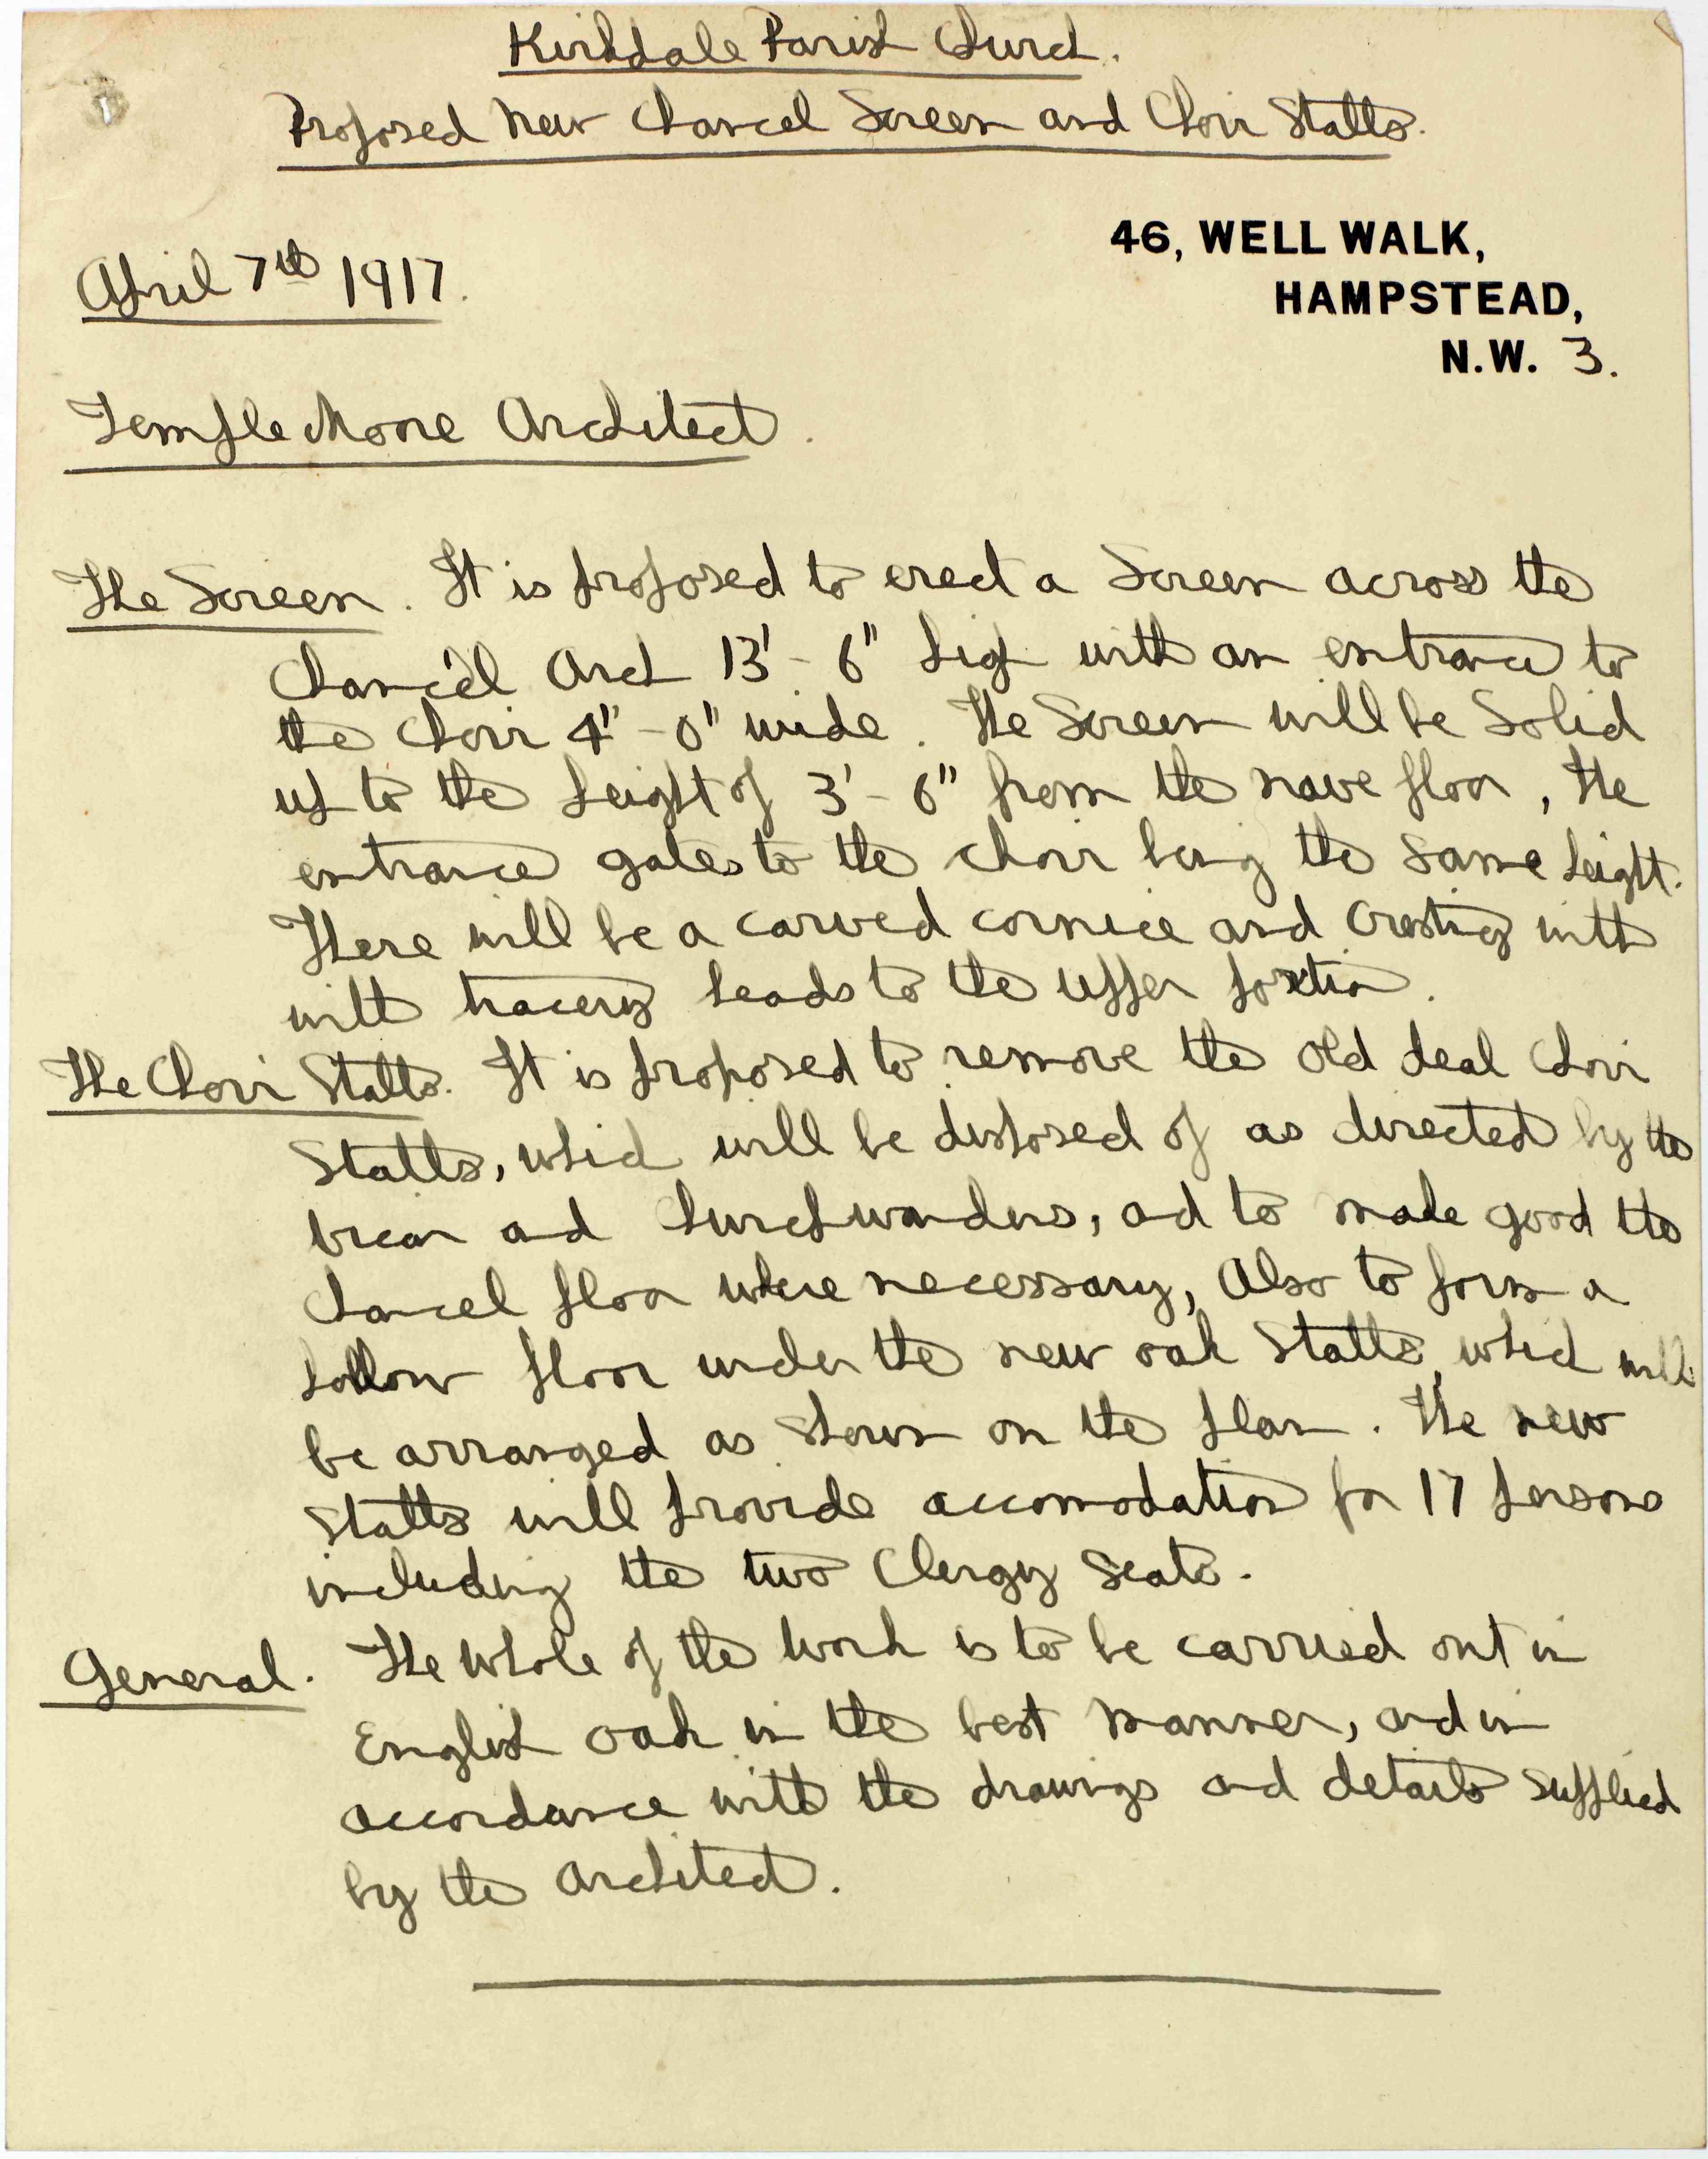 Kirkdale Parish Church.
Proposed New Chancel Screen and Choir Stalls.
46, WELL WALK,
HAMPSTEAD,
N.W. 3.
April 7th 1917.
Temple Moore Architect.
The Screen. It is proposed to erect a Screen across the
Chancel Arch 13' - 6" high with an entrance to
the Choir 4' - 0" wide. The Screen will be Solid
up to the height of 3' - 6" from the nave floor, the
entrance gates to the choir being the same height.
There will be a carved cornice and cresting with
with tracery heads to the upper portion.
The Choir Stalls. It is proposed to remove the old deal Choir
Stalls, which will be disposed of as directed by the
vicar and Churchwardens, and to make good the
Chancel floor where necessary, Also to form a
hollow floor under the new oak Stalls, which will
be arranged as shown on the plan. The new
Stalls will provide accomodation for 17 persons
including the two Clergy Seats.
General. The whole of the work is to be carried out in
English oak in the best manner, and in
accordance with the drawings and details supplied
by the architect.